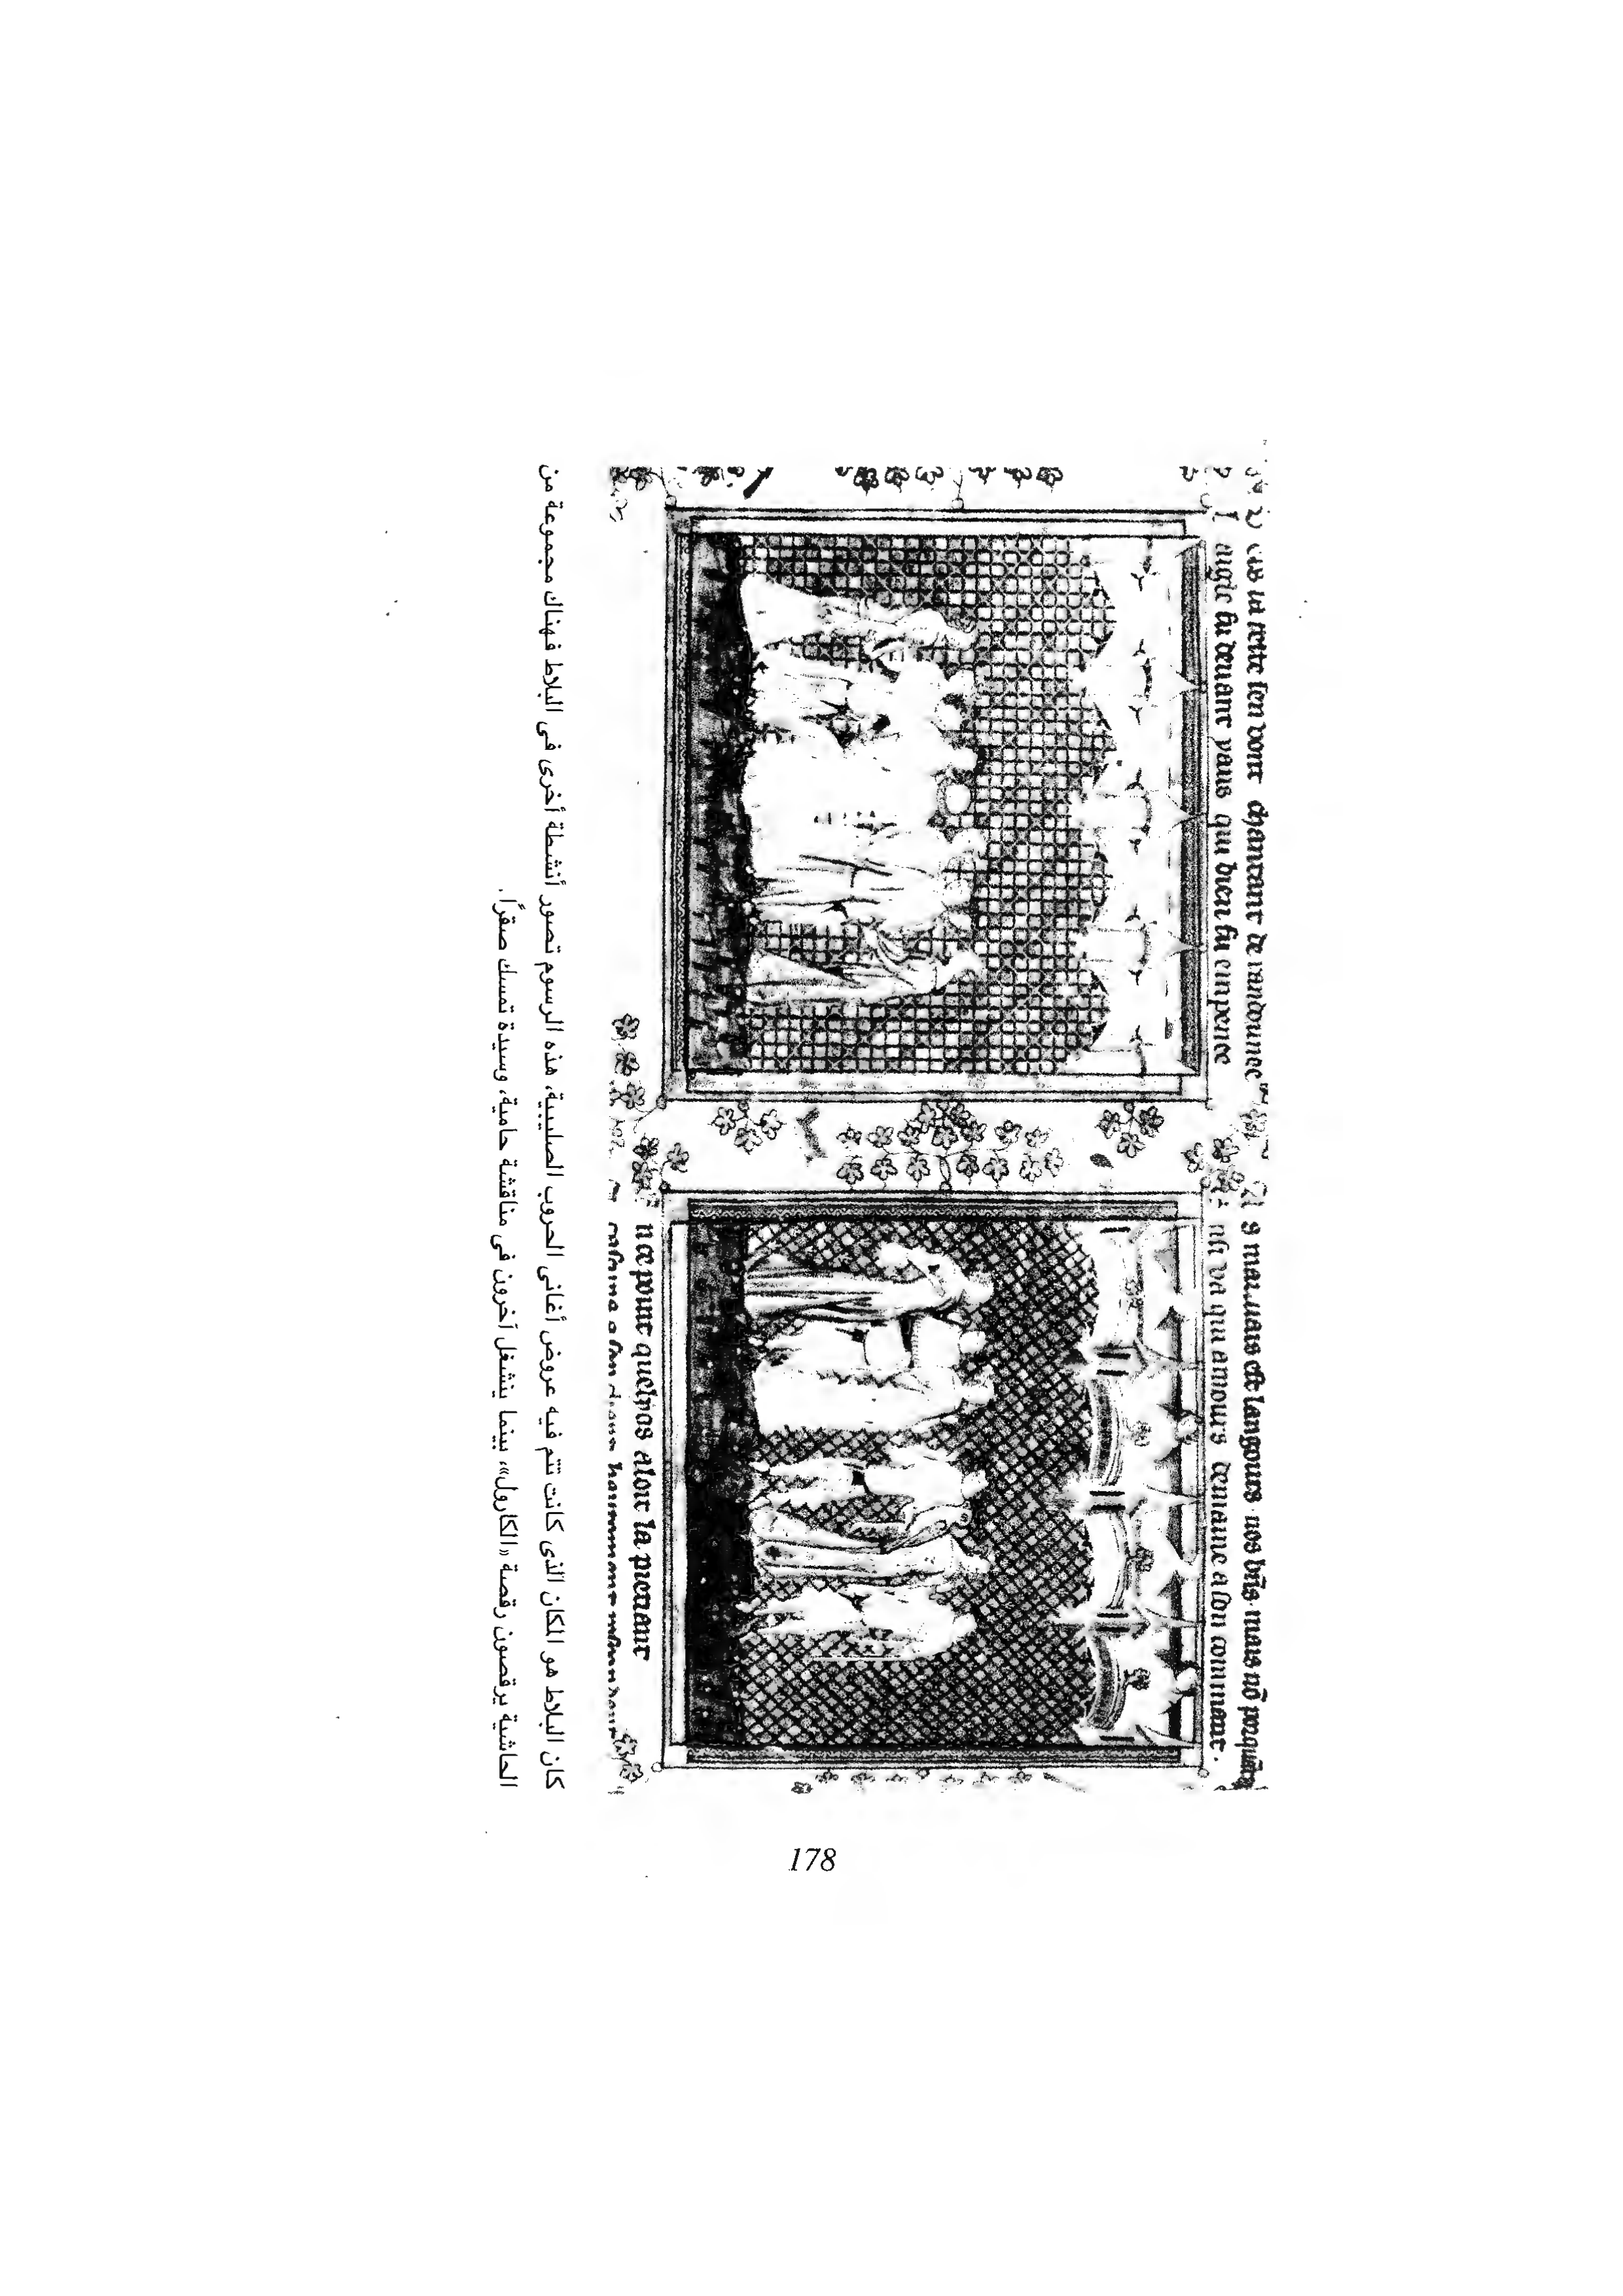 us la rette sen vont chantant de randounee
augie fu devant paus qui bien fu enpense
s mauuais est langours nos bñs mais nõ
nsi va qui amours demaine a son commant.
nce pour quelpas aloit la pieaant
كان البلاط هو المكان الذى كانت تتم فيه عروض أغانى الحروب الصليبية، هذه الرسوم تصور أنشطة أخرى فى البلاط فهناك مجموعة من
الحاشية يرقصون رقصة «الكارول»، بينما ينشغل آخرون فى مناقشة حامية، وسيدة تمسك صقراً.
178